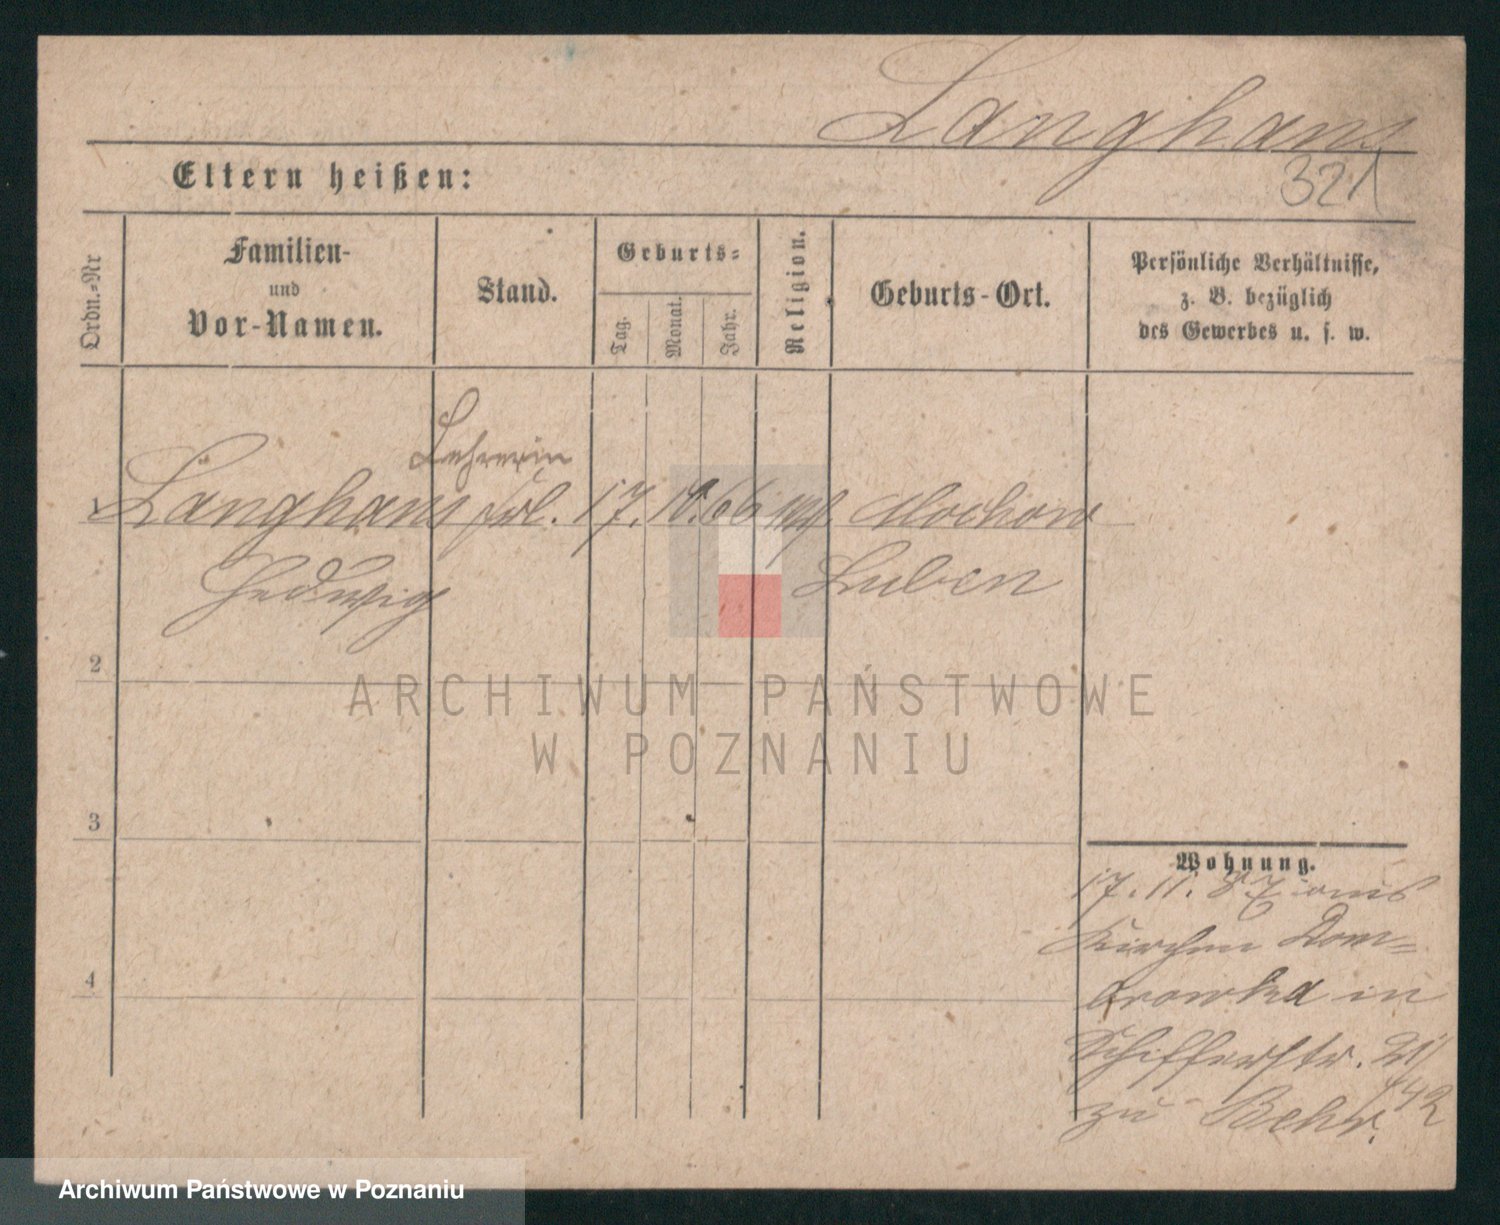 Langhans
321
Eltern heißen:
Ordn.-Nr
Familien-
und
Vor-Namen.
Stand.
Geburts-
Tag.
Monat.
Jahr.
Religion.
Geburts-Ort.
Persönliche Verhältnisse,
z. B. bezüglich
des Gewerbes u. s. w.
Lehrerin
1 Langhans Frl. 17. 66 Mochow
Hedwig Luben
2
ARCHIWUM PAŃSTWOWE
W POZNANIU
3
Wohnung.
17. 11. 87 aus
Kirchen Dom-
browka in
Schifferstr. 21/
442
zu Behr.
4
Archiwum Państwowe w Poznaniu